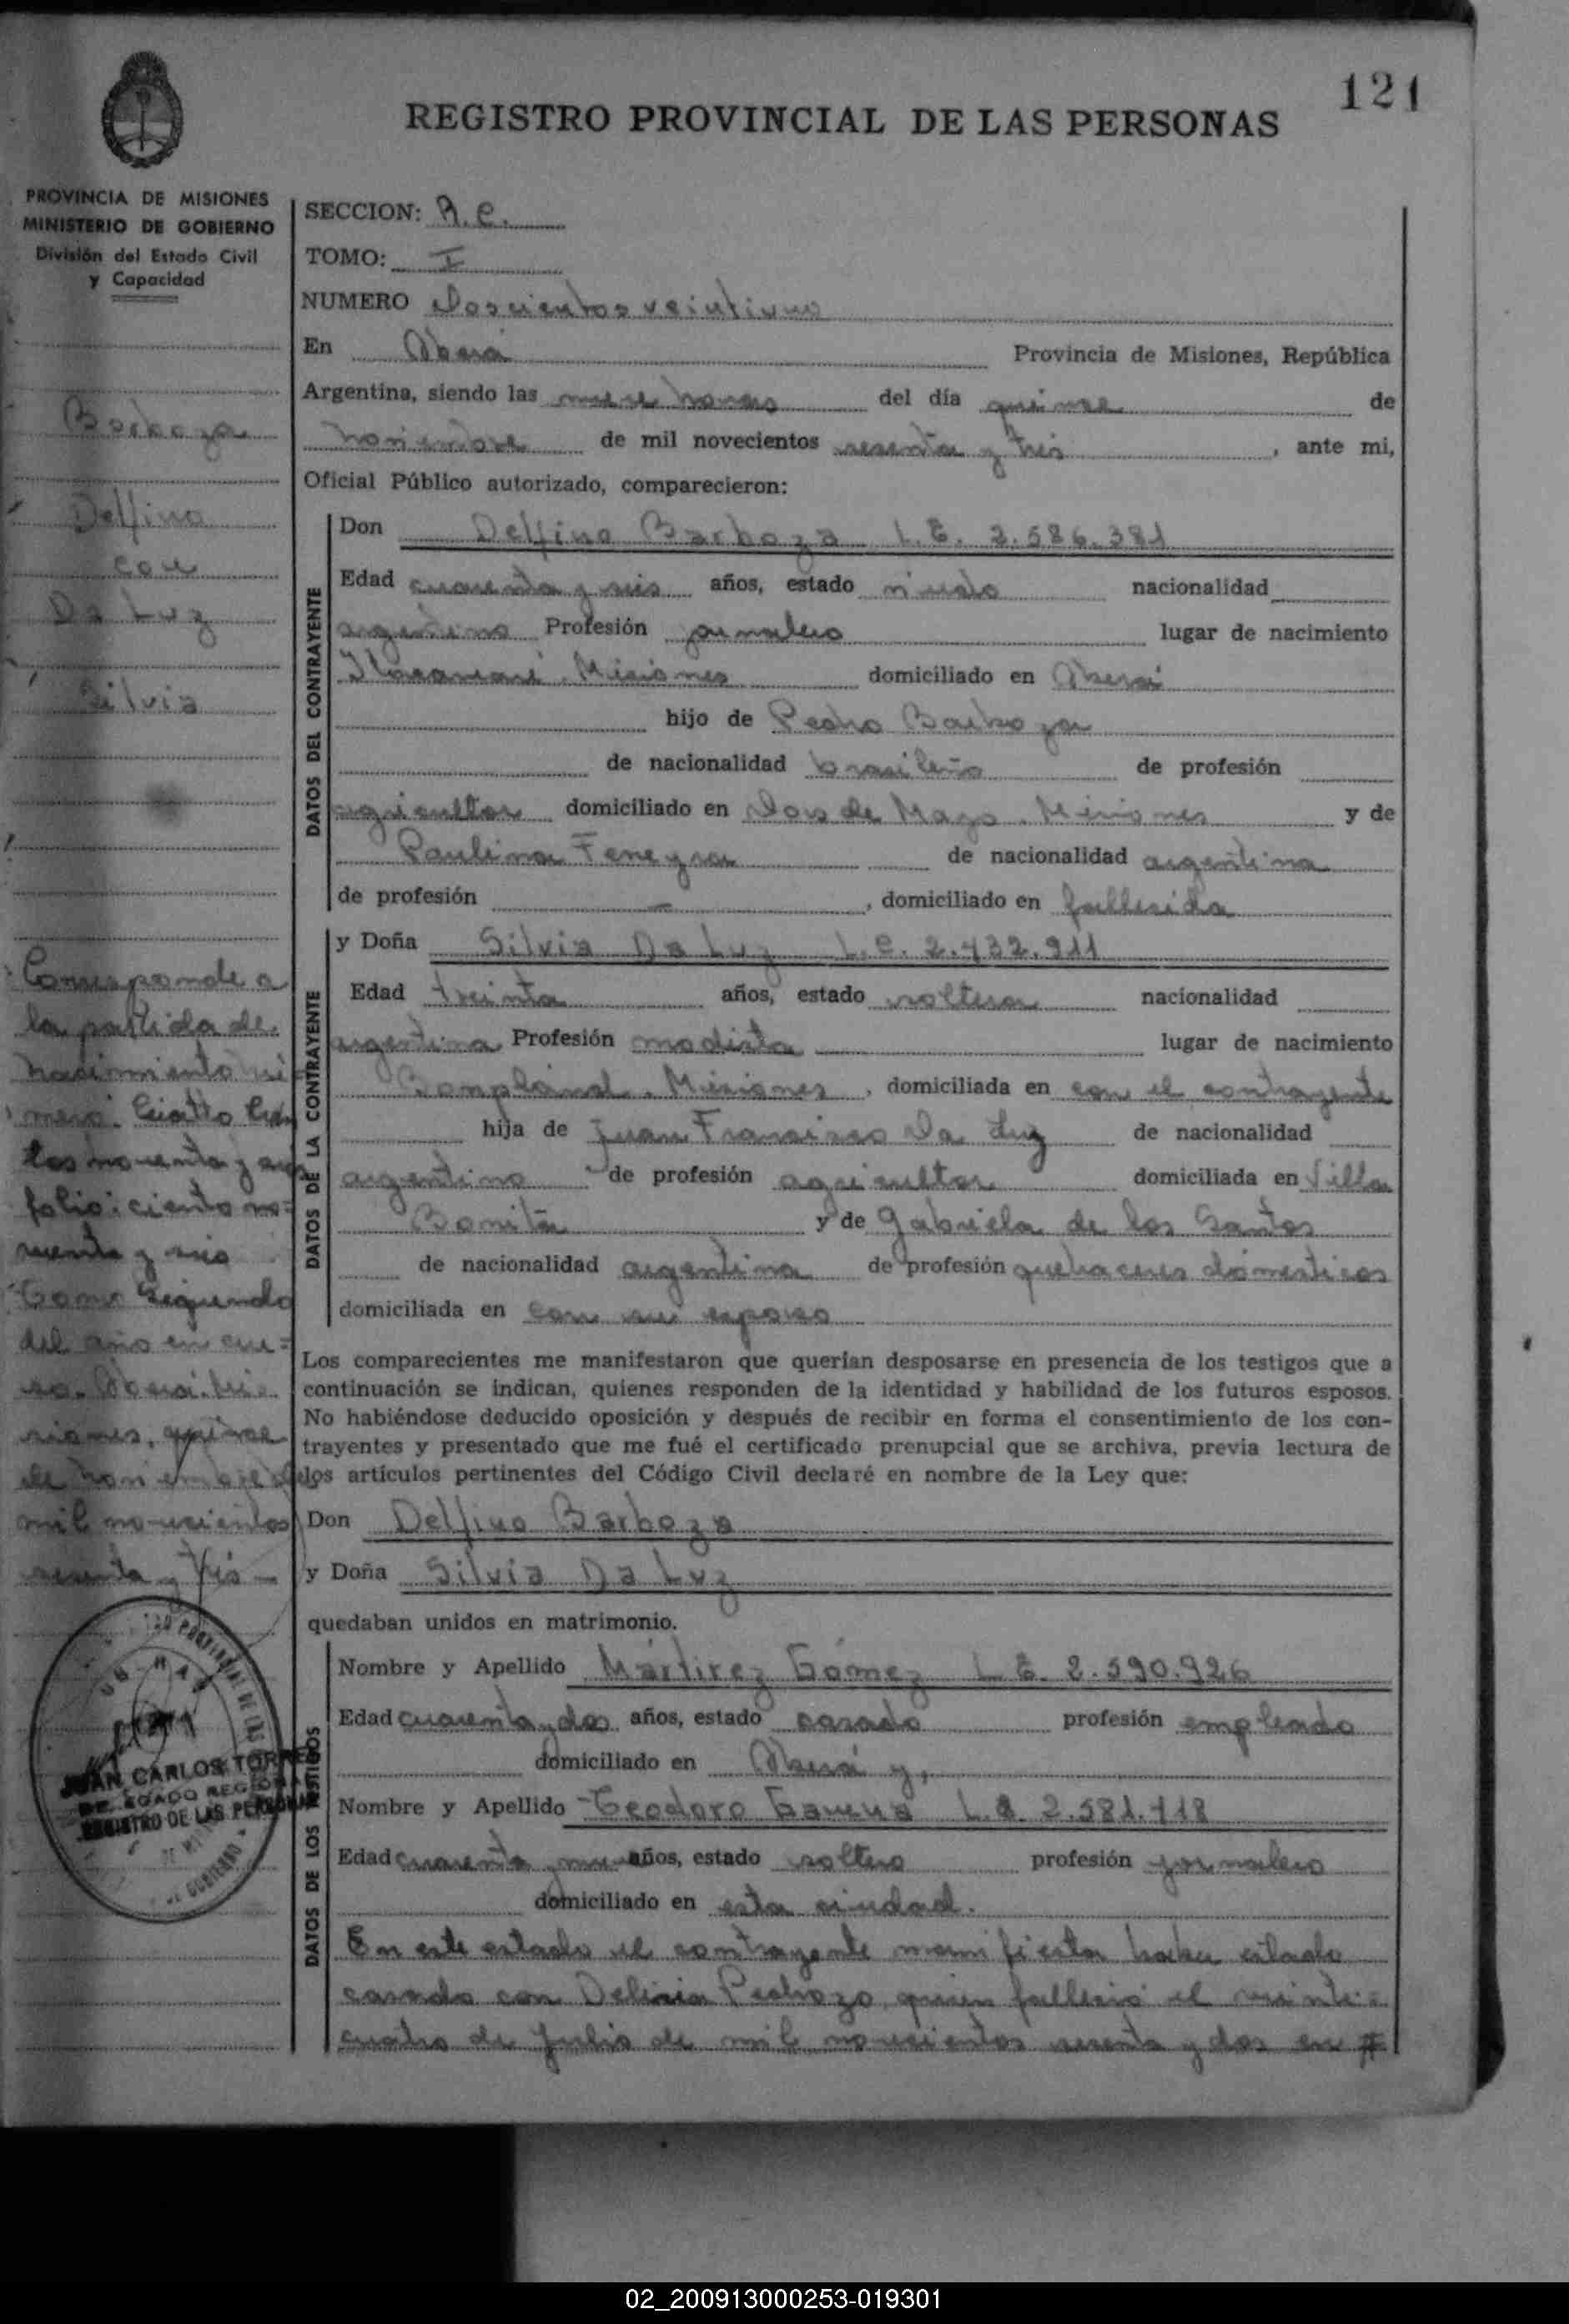 121
REGISTRO PROVINCIAL DE LAS PERSONAS
PROVINCIA DE MISIONES
MINISTERIO DE GOBIERNO
División del Estado Civil
y Capacidad
Barboza
Delfino
con
Da Luz
Silvia
Corresponde a
la partida de
nacimiento nú
mero: Cuatro Cien
tos noventa y
folio: ciento no=
venta y seis
Tomo Segundo
del año en cur=
so. Oberá. Mi=
siones, quince
de noviembre de
mil novecientos
sesenta y tres —
JUAN CARLOS TORRES
DELEGADO REGIONAL
REGISTRO DE LAS PERSONAS
SECCION: R. C.
TOMO: I
NUMERO Doscientos veintiuno
En Oberá Provincia de Misiones, República
Argentina, siendo las nueve horas del día quince de
noviembre de mil novecientos sesenta y tres, ante mi,
Oficial Público autorizado, comparecieron:
DATOS DEL CONTRAYENTE
Don Delfino Barboza L. E. 2.586.381
Edad cuarenta y seis años, estado viudo nacionalidad
argentino Profesión jornalero lugar de nacimiento
Itacaruaré. Misiones domiciliado en Oberá
hijo de Pedro Barboza
de nacionalidad brasileño de profesión
agricultor domiciliado en Dos de Mayo. Misiones y de
Paulina Fereyra de nacionalidad argentina
de profesión —, domiciliado en fallecida
DATOS DE LA CONTRAYENTE
y Doña Silvia Da Luz L. C. 2.432.911
Edad treinta años, estado soltera nacionalidad
argentina Profesión modista lugar de nacimiento
Bompland. Misiones, domiciliada en con el contrayente
hija de Juan Francisco Da Luz de nacionalidad
argentino de profesión agricultor domiciliada en Villa
Bonita y de Gabriela de los Santos
de nacionalidad argentina de profesión quehaceres domésticos
domiciliada en con su esposo
Los comparecientes me manifestaron que querían desposarse en presencia de los testigos que a
continuación se indican, quienes responden de la identidad y habilidad de los futuros esposos.
No habiéndose deducido oposición y después de recibir en forma el consentimiento de los con-
trayentes y presentado que me fué el certificado prenupcial que se archiva, previa lectura de
los artículos pertinentes del Código Civil declaré en nombre de la Ley que:
Don Delfino Barboza
y Doña Silvia Da Luz
quedaban unidos en matrimonio.
DATOS DE LOS TESTIGOS
Nombre y Apellido Mártirez Gómez L. E. 2.590.926
Edad cuarenta y dos años, estado casado profesión empleado
domiciliado en Oberá y,
Nombre y Apellido Teodoro L. E. 2.581.418
Edad cuarenta y años, estado soltero profesión jornalero
domiciliado en esta ciudad.
En este estado el contrayente manifiesta haber estado
casado con Delicia Pedrozo, quien falleció el veinti=
cuatro de Julio de mil novecientos sesenta y dos en #
02_200913000253-019301